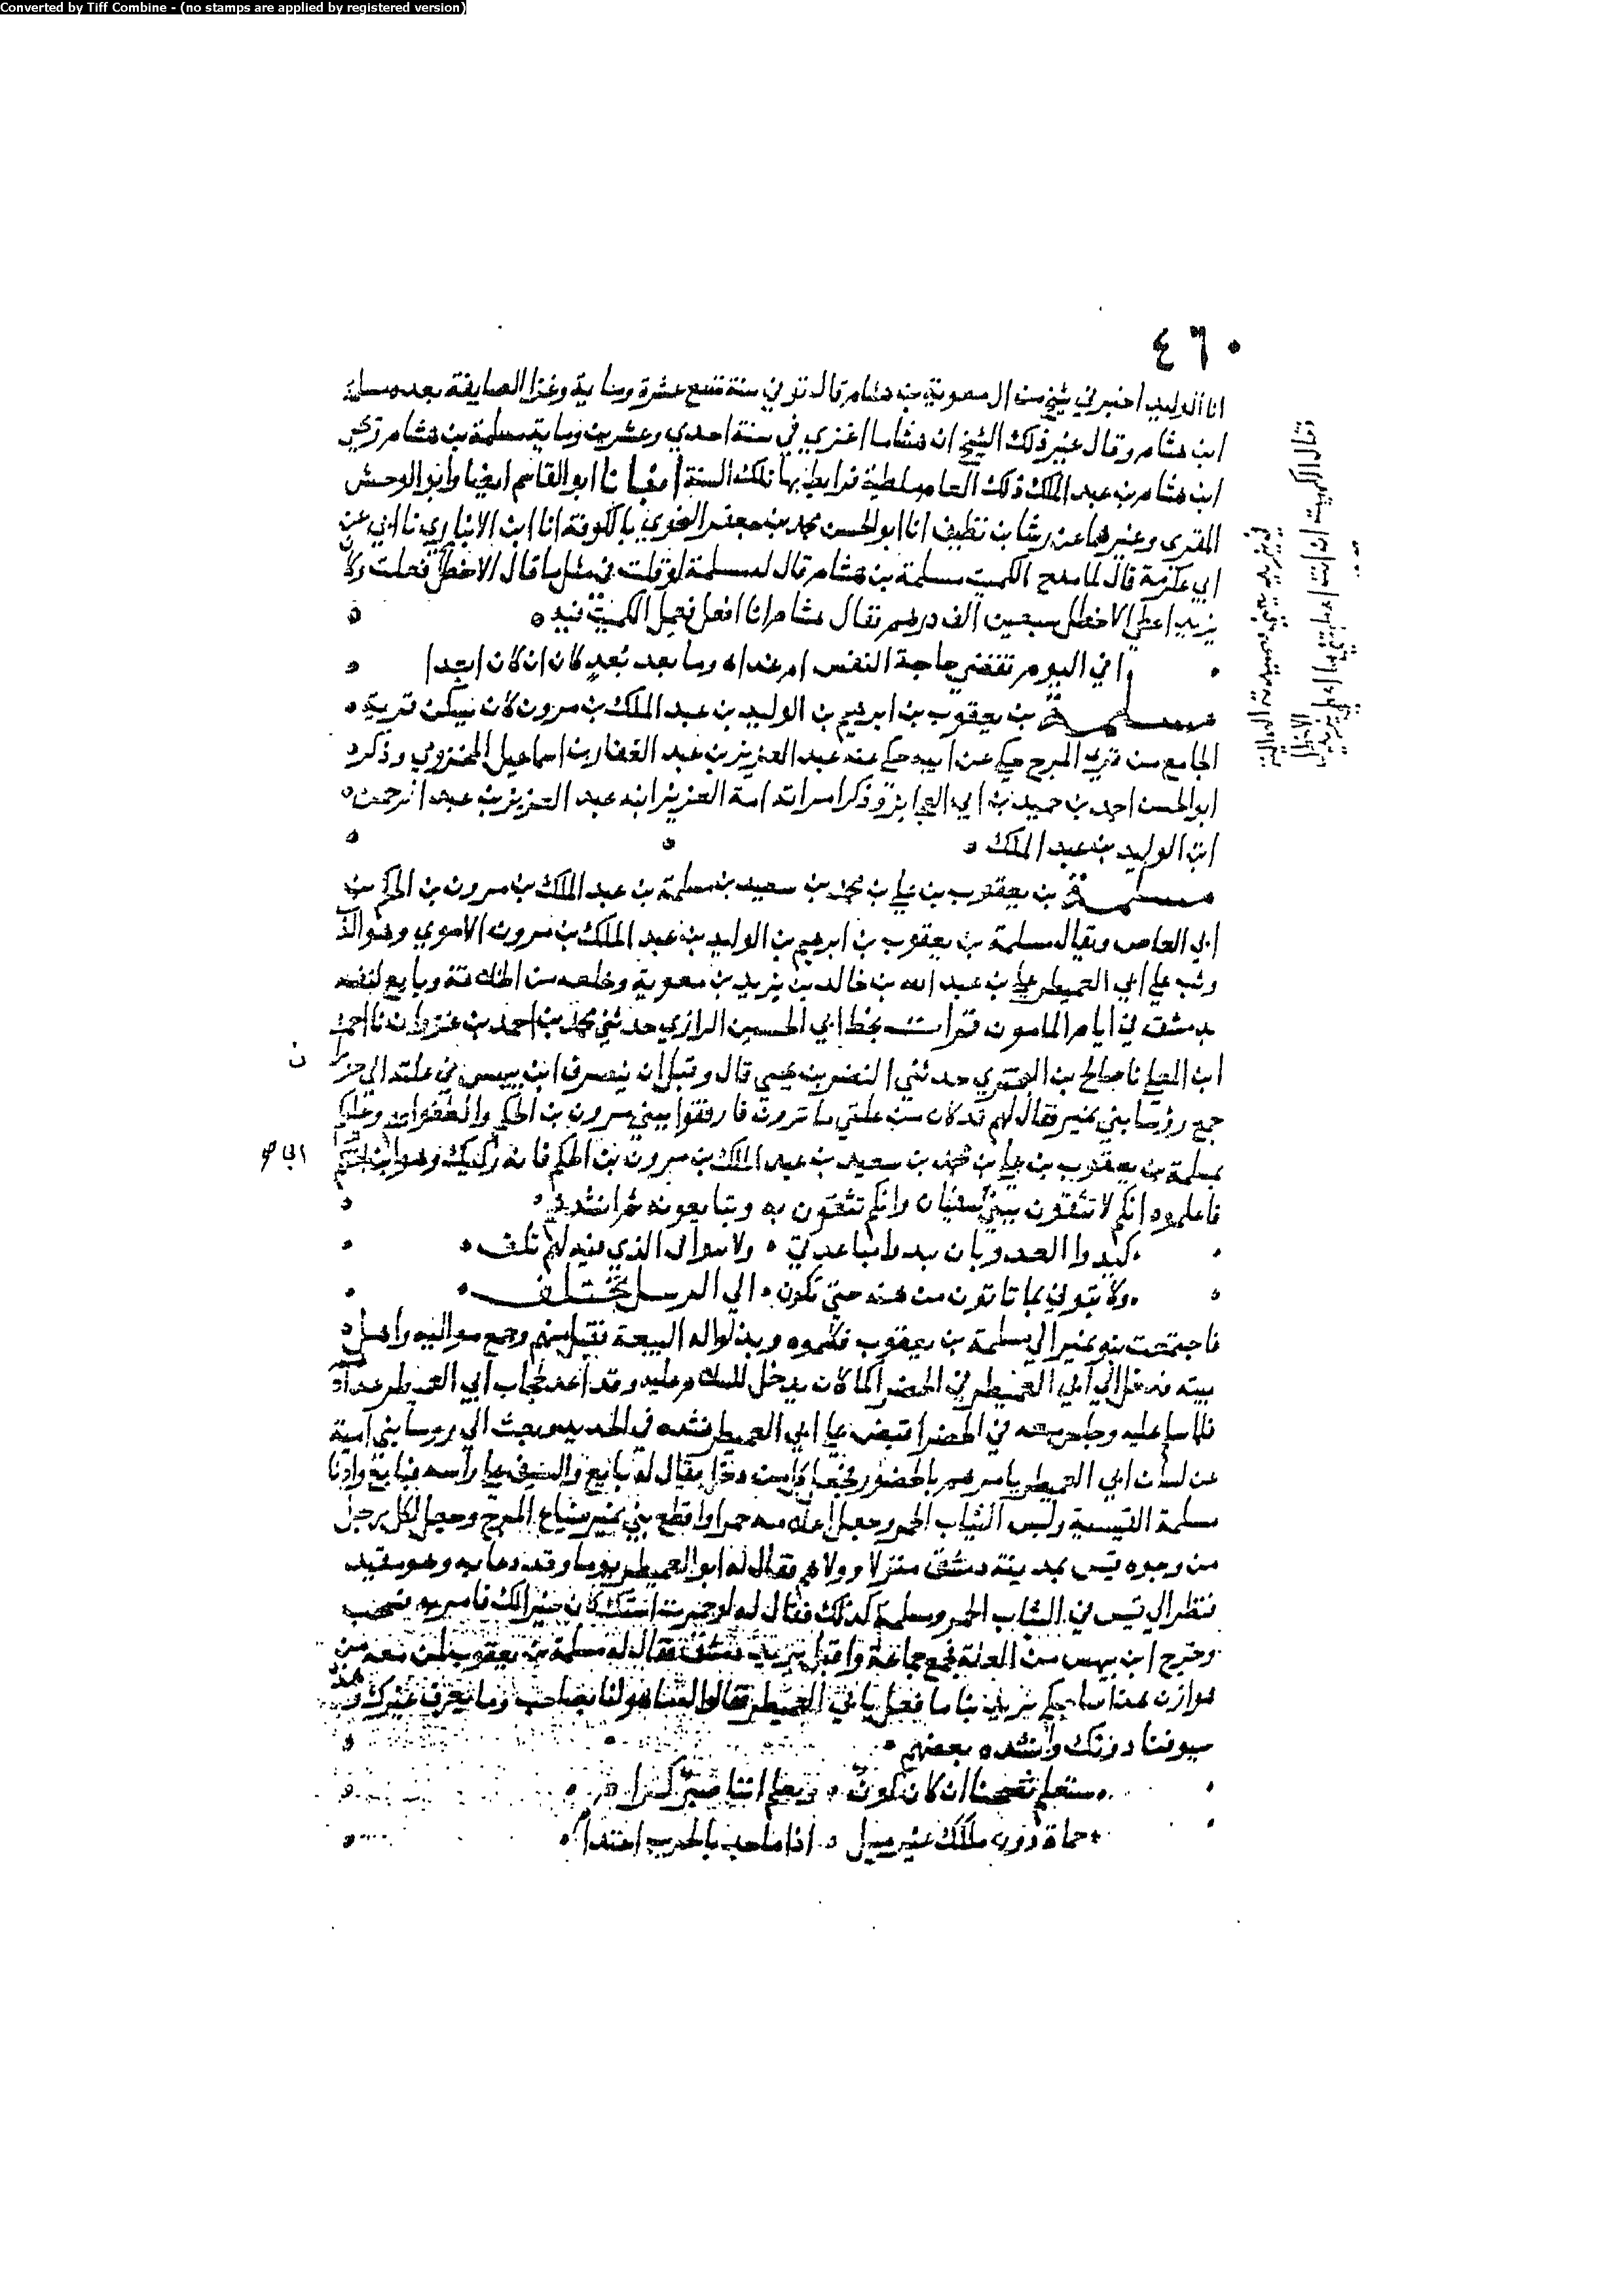 Converted by Tiff Combine - (no stamps are applied by registered version)
٤٦٠
انا الوليد اخبرني شيخ من ال معوية بن هشام قال توفي سنة تسع عشرة ومايه وغزا الصايفة بعده مسلمة
ابن هشام وقال غير ذلك الشيخ ان هشاما اغزي في سنة احدي وعشرين وماية مسلمة بن هشام
ابن هشام بن عبد الملك ذلك العام ملطية فرابط بها تلك السنة انبانا ابو القاسم ايضا وابو الوحش
المقرى وغيرهما عن رشا بن نظيف انا ابو الحسن محمد بن جعفر النحوي بالكوفة انا ابن الانباري نا ابي عن
ابي عكرمة قال لما مدح الكميت مسلمة بن هشام قال له مسلمة لو قلت في مثل ما قال الاخطل فعلت وكان
يزيد اعطي الاخطل سبعين الف درهم فقال هشام انا افعل فعمل الكميت فيه
افي اليوم تقضي حاجة النفس ام غدا وما بعد بُعدٍ كان ان كان ابعدا
مسلمة بن يعقوب بن ابرهيم بن الوليد بن عبد الملك بن مرون كان يسكن قرية
الجامع من قري المرج حكي عن ابيه حكي عنه عبد العزيز بن عبد الغفار بن اسماعيل المخزومي وذكره
ابو الحسن احمد بن حميد بن ابي العجايز وذكر امراته امة العزيز ابنه عبد العزيز بن عبد الرحمن
ابن الوليد بن عبد الملك
مسلمة بن يعقوب بن علي بن محمد بن سعيد بن مسلمة بن عبد الملك بن مرون بن الحكم بن
ابي العاص ويقال مسلمة بن يعقوب بن ابرهيم بن الوليد بن عبد الملك بن مرون الاموي وهو الذي
وثب علي ابي العميطر علي بن عبد الله بن خالد بن يزيد بن معوية وخلعه من الخلافة وبايع لنفسه
بدمشق في ايام المامون قرات بخط ابي الحسين الرازي حدثني محمد بن احمد بن غزوان نا احمد
ابن المعلي نا صالح بن البختري حدثني النضر بن يحيي قال وقبل ان ينصرف ابن بيهس في علته الي
جمع روسا بني نمير فقال لهم قد كان من علتي ما ترون فارفقوا ببني مرون بن الحكم والطفوا بهم وعليكم
بمسلمة بن يعقوب بن علي بن محمد بن سعيد بن عبد الملك بن مرون بن الحكم فانه ركيك وهو ابن اختكم
فاعلموه انكم لا تثقون ببني سفيان وانكم تثقون به وتبايعونه ثم انشد
كيدوا العدو بان مباعدتي ولا الذي فيه لهم تلف
ولا بما تاتون من هنه حتي تكون الي الرسل تختلف
فاجتمعت بنو نمير الي مسلمة بن يعقوب فكلموه وبذلوا له البيعة فقبل منهم وجمع مواليه واهل
بيته فدخل الي ابي العميطر في الخضرا كما كان يدخل للسلام عليه وقد اعد لحجاب ابي العميطر
عليه وجلس معه في الخضرا قبض علي ابي العميطر فشده في الحديد وبعث الي روسا بني امية
عن لسان ابي العميطر يامرهم بالحضور فجعل كل من دخل يقال له بايع والسيف علي راسه فيبايع وادنا
مسلمة القيسية ولبس الثياب الحمر وجعل اعلامه حمرا واقطع بني نمير ضياع المرج وجعل لكل رجل
من وجوه قيس بمدينة دمشق منزلا وولاهم فقال له ابو العميطر يوما وقد دعا به وهو مقيد
فنظر الي قيس في الثياب الحمر ومسلمة كذلك فقال له لو كان خيرا لك فامر به
وخرج ابن بيهس من العلة فجمع جماعة واقبل يريد دمشق فقال له مسلمة بن يعقوب لمن معه من
هوازن هذا صاحبكم يريد بنا ما فعل بابي العميطر فقالوا ما هو لنا بصاحب وما نعرف غيرك وهذه
سيوفنا دونك وانشده بعضهم
ستعلم نصحنا ان كان كون وتعلم اننا صبر كرام
حماة دون ملكك غير ميل اذا ما بالحرب